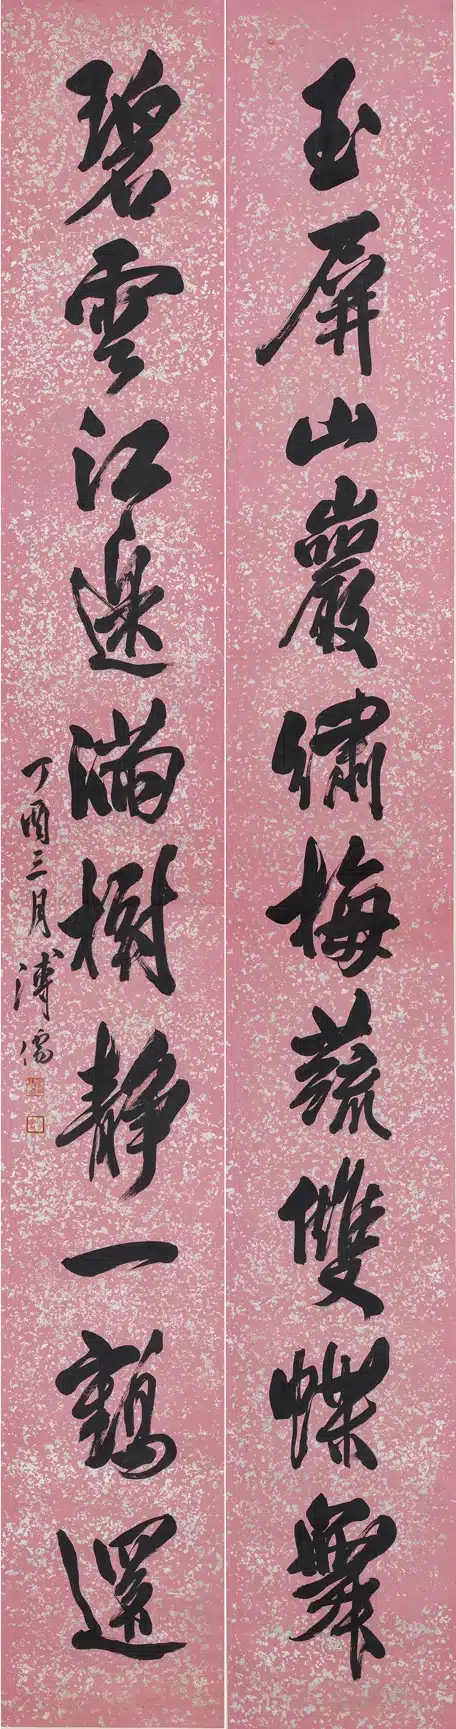 玉屏山巖繡梅蔬雙蝶舞
碧雲江邊滿樹靜一鶴還
丁酉三月溥儒